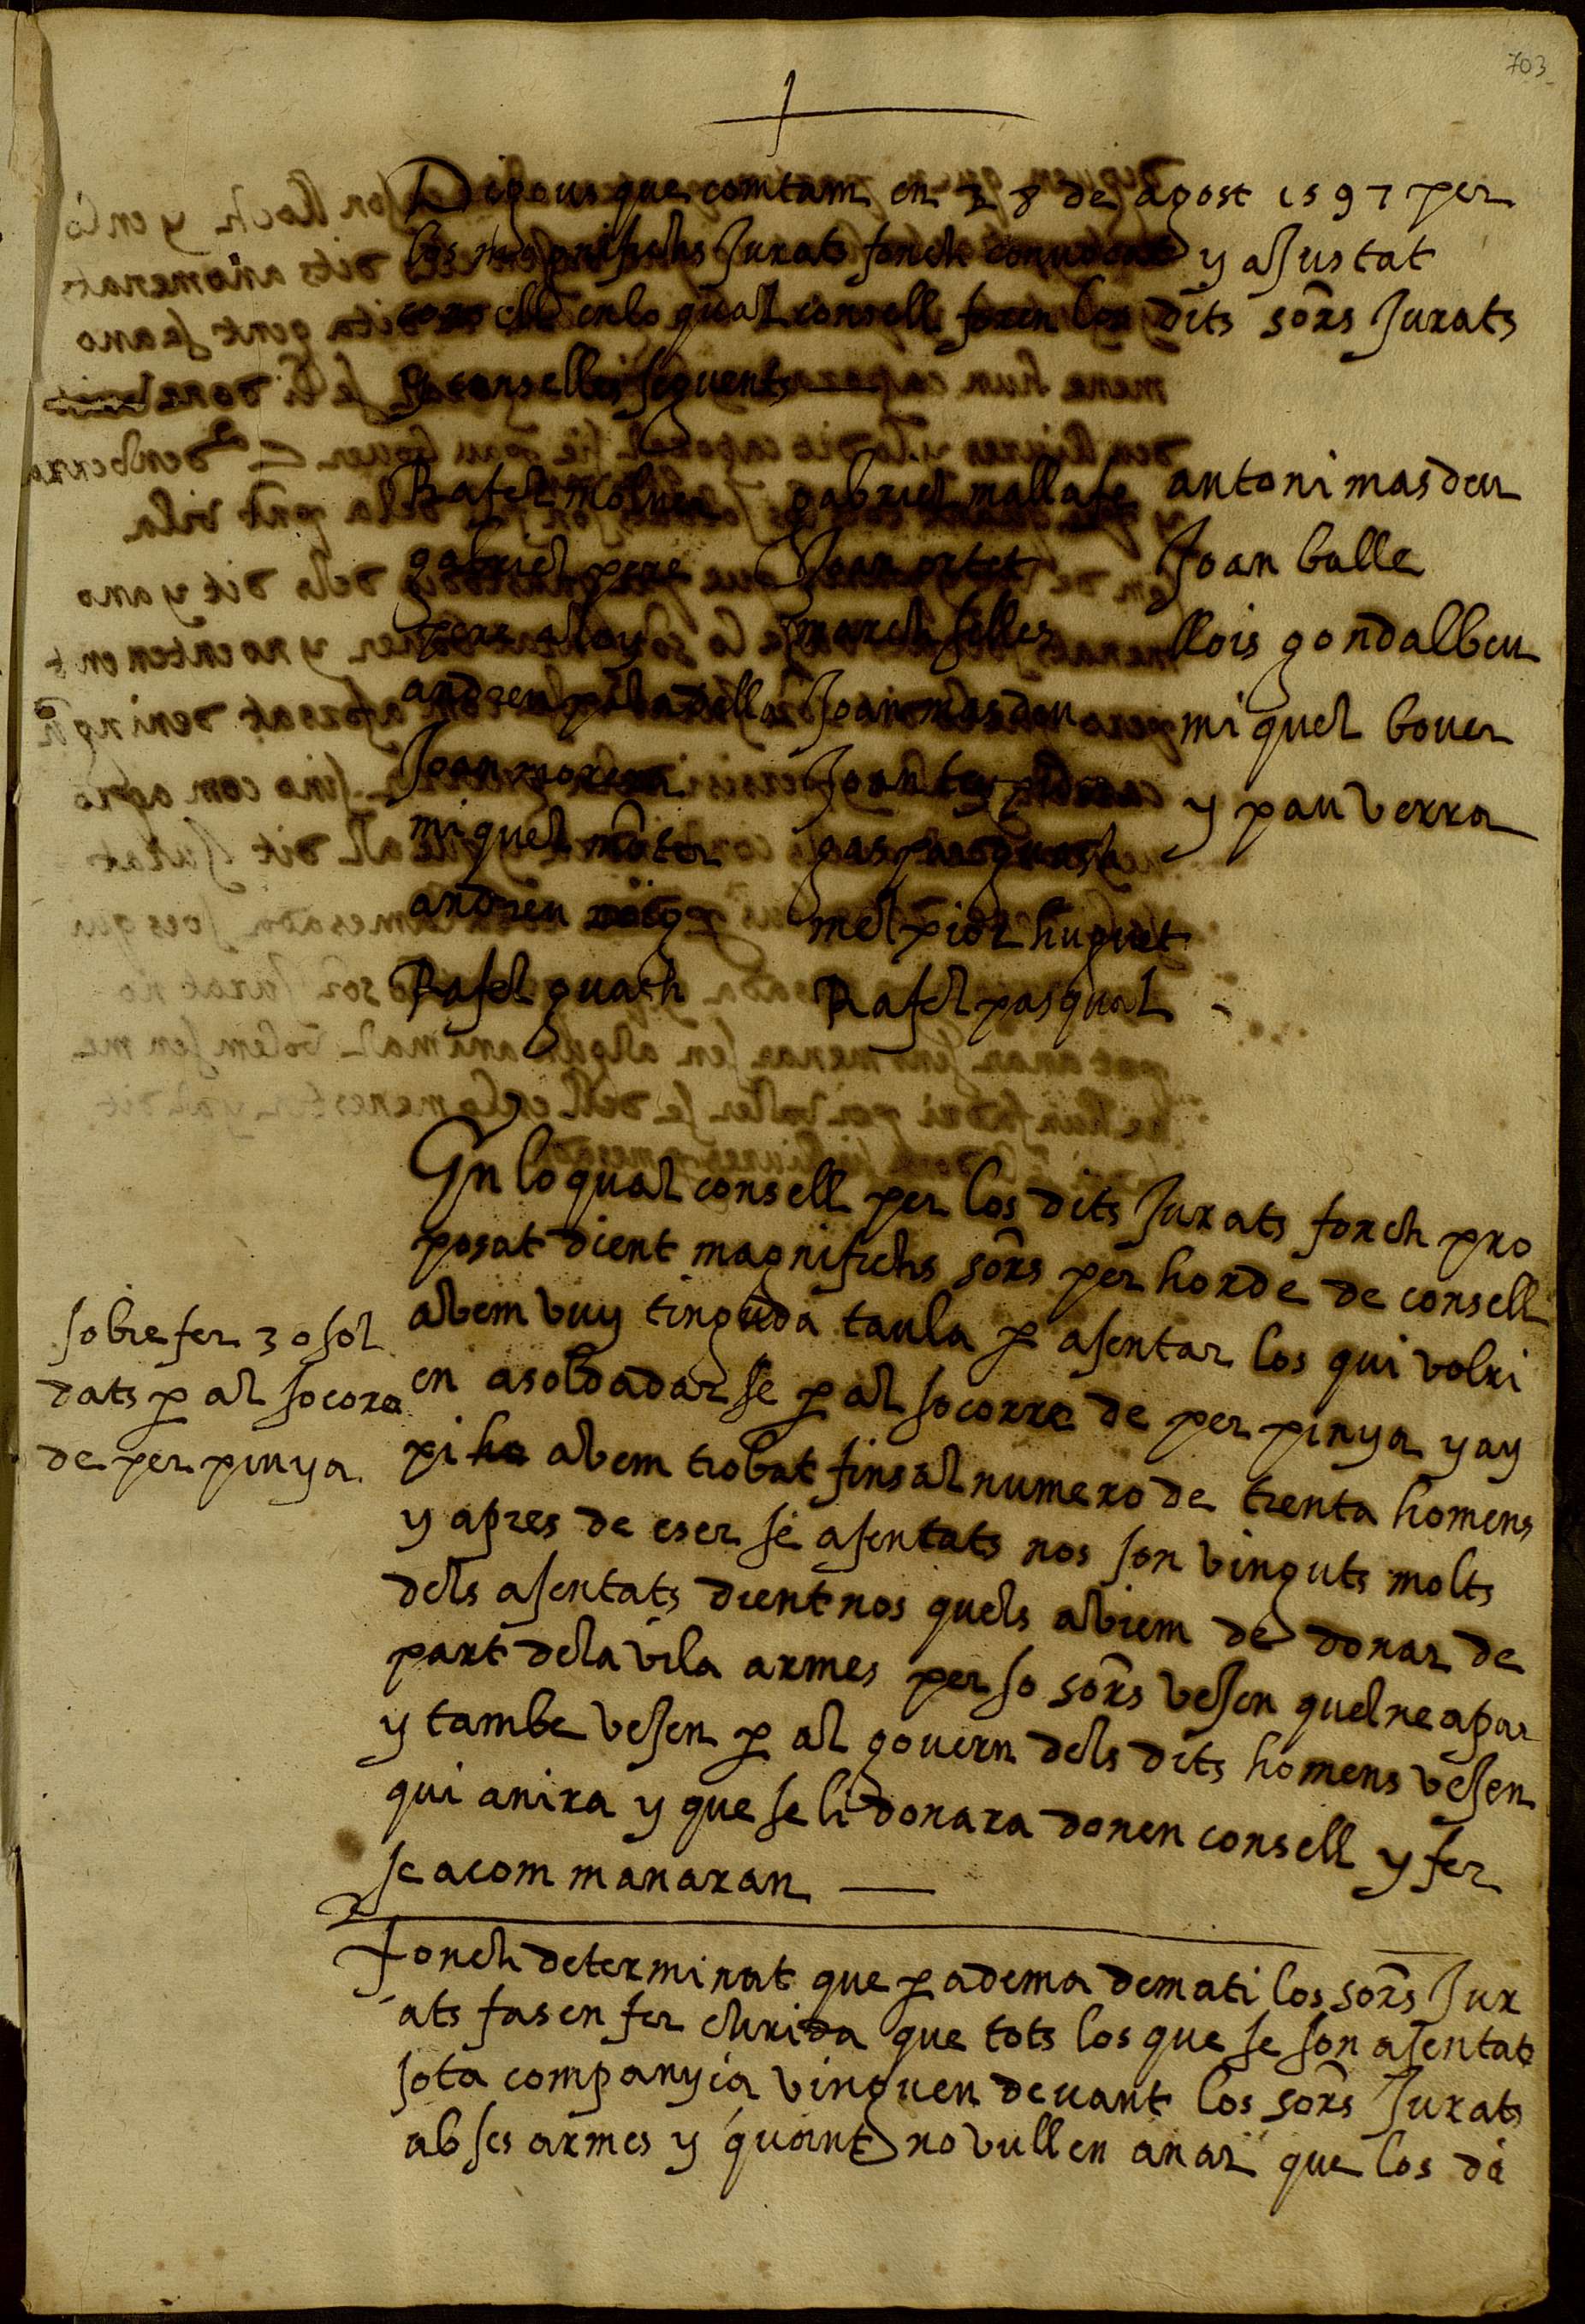 703
Digous que comtam en 28 de agost 1597 per
los magnifichs Jurats fonch convocat y ajustat
consell en lo qual consell foren los dits sõrs Jurats
y consellers seguents
Rafel moline gabriel mallafe antoni masdeu
gabriel pere Joan ortet Joan balle
pere aloy march selles llois gondalbeu
andreu Joan masdeu miquel bover
Joan morera Joan y pau verra
miquel gaspar guasch
andreu roig melpior huguet
Rafel guasch Rafel pasqual
En lo qual consell per los dits Jurats fonch pro
posat dient magnifichs sõrs per horde de consell
abem vuy tinguda taula p asentar los qui volri
en asoldadar se p al socorre de per pinya y ay
pi ho abem trobat fins al numero de trenta homens
y apres de eser se asentats nos son vinguts molts
dels asentats dient nos quels abiem de donar de
part dela vila armes per so sõrs vesen quel ne apar
y tambe vesen p al govern dels dits homens vesen
qui anira y que se li donara donen consell y fer
se a com manaran
sobre fer 30 sol
dats p al socore
de per pinya
fonch determinat que p a dema demati los sõrs Jur
ats fasen fer chrida que tots los que se son asentats
sota companyia vinguen devant los sõrs Jurats
ab ses armes y quant no vullen anar que los di